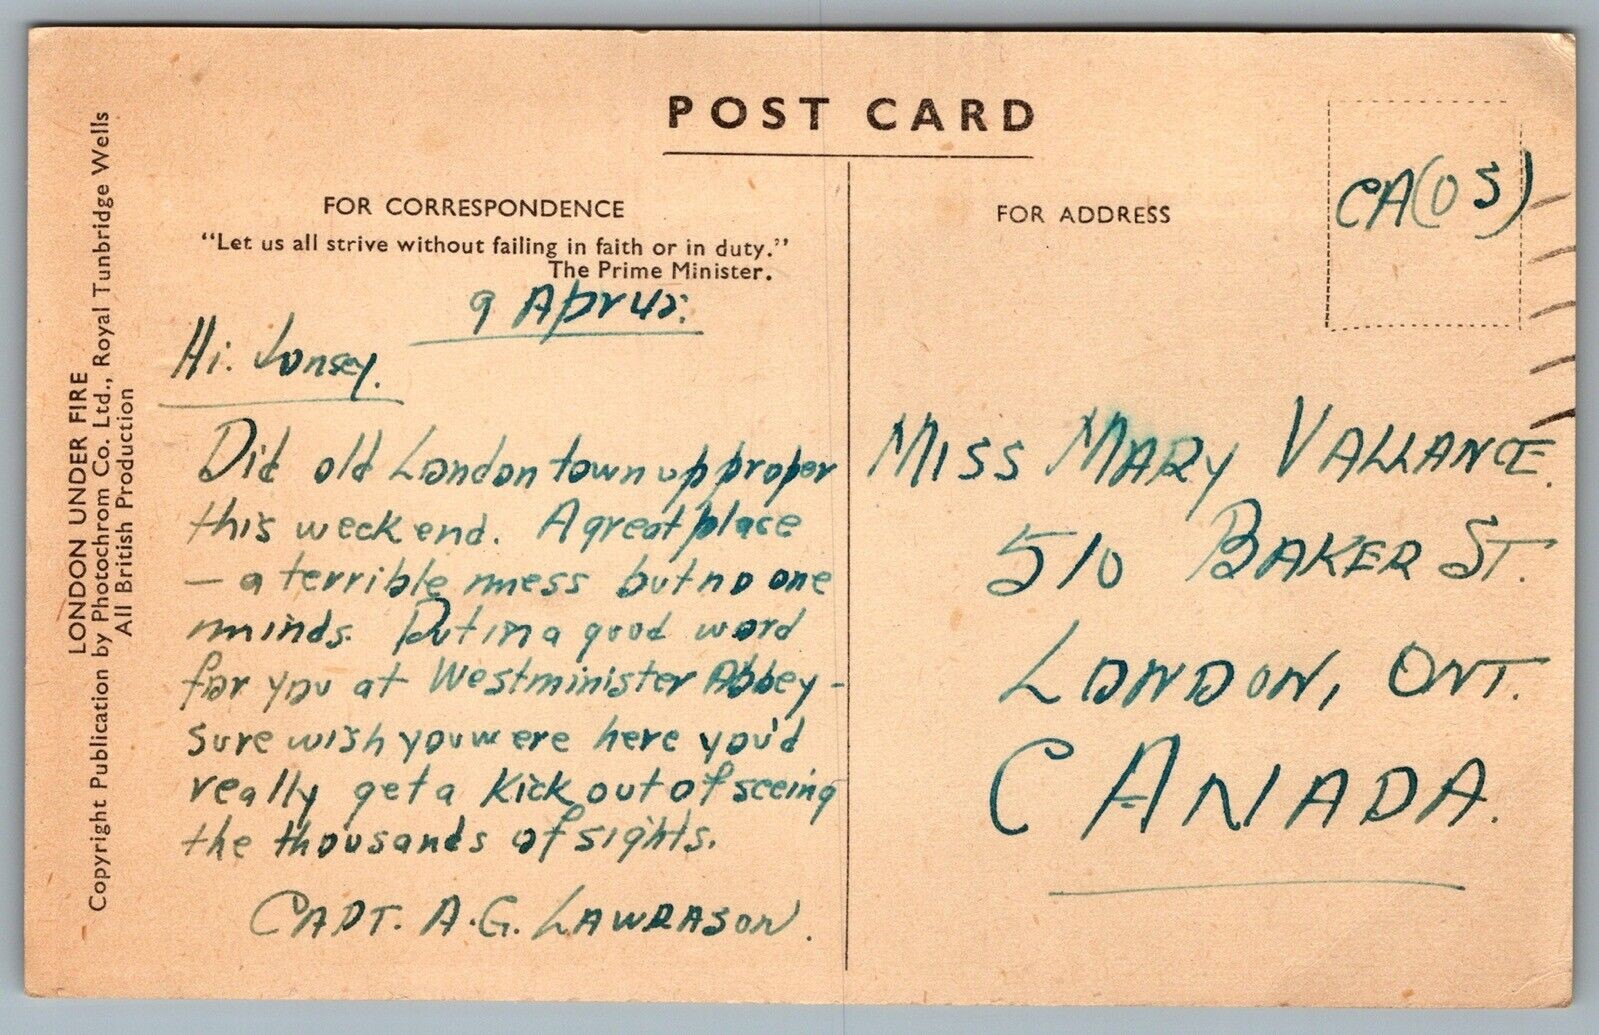 POST CARD
FOR CORRESPONDENCE
"Let us all strive without failing in faith or in duty."
The Prime Minister.
9 Apr 42.
Hi. Jonsey.
Did old London town up proper
this week end. A great place
— a terrible mess but no one
minds. Put in a good word
for you at Westminister Abbey -
sure wish you were here you'd
really get a kick out of seeing
the thousands of sights.
CAPT. A.G. LAWRASON.
FOR ADDRESS
CA(OS)
MISS MARY VALLANCE.
510 BAKER ST.
LONDON, ONT.
CANADA.
LONDON UNDER FIRE
Copyright Publication by Photochrom Co. Ltd., Royal Tunbridge Wells
All British Production